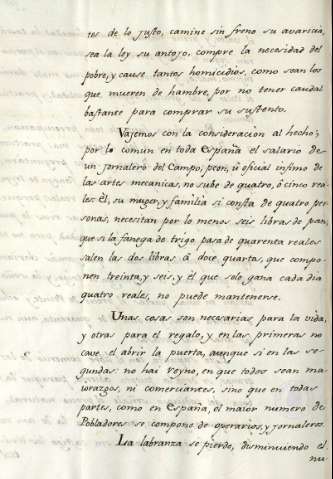 res de lo justo, camine sin freno su avaricia,
sea la ley su antojo, compre la necesidad del
pobre, y cause tantos homicidios, como sean los
que mueren de hambre, por no tener caudal
bastante para comprar su sustento.
Vajemos con la consideracion al hecho;
por lo comun en toda España el salario de
un jornalero del Campo, peon, ù oficial infimo de
las artes mecanicas, no sube de quatro, ò cinco rea-
les: El, su muger, y familia si consta de quatro per-
sonas, necesitan por lo menos seis libras de pan,
que si la fanega de trigo pasa de quarenta reales
salen las dos libras à doce quartos, que compo-
nen treinta, y seis, y èl que solo gana cada dia
quatro reales, no puede mantenerse.
Unas cosas son necesarias para la vida,
y otras para el regalo, y en las primeras no
cave el abrir la puerta, aunque si en las se-
gundas: no hai reyno, en que todos sean ma-
iorazgos, ni comerciantes, sino que en todas
partes, como en España, el maior numero de
Pobladores se compone de operarios, y jornaleros.
La labranza se pierde, disminuiendo el
nu-